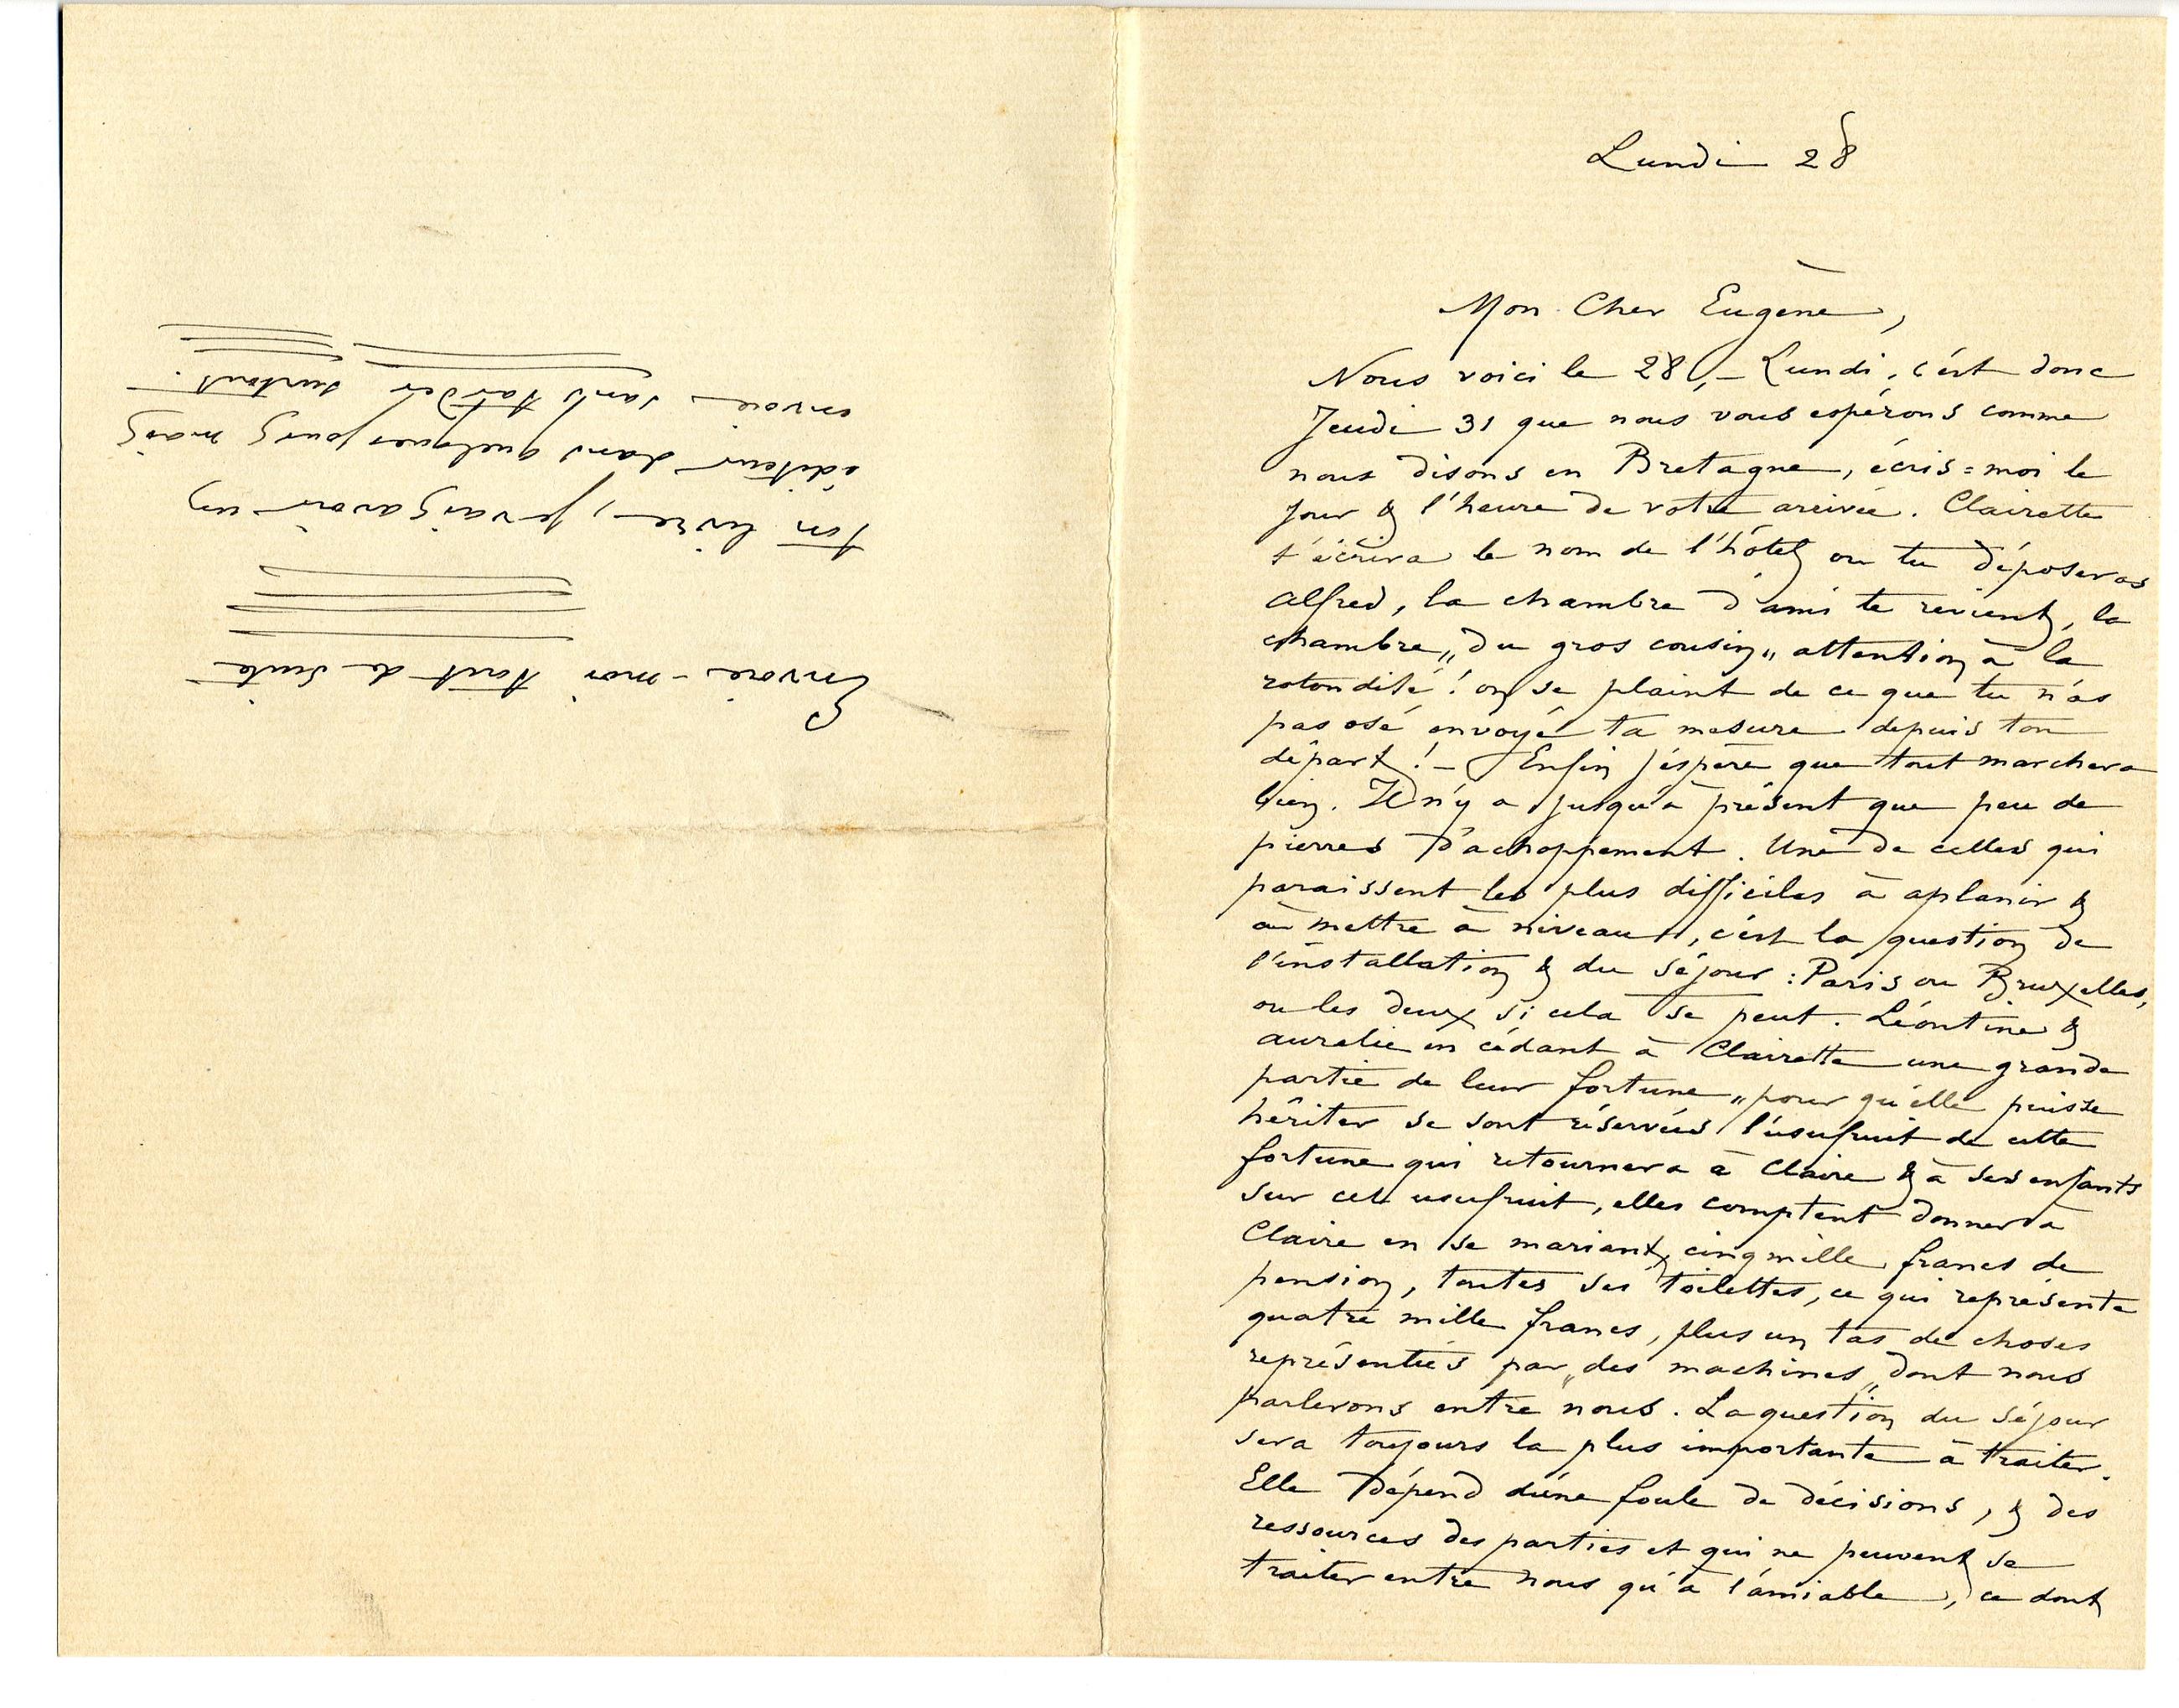 Lundi 28
Mon Cher Eugène,
Nous voici le 28, – Lundi, c'est donc
Jeudi 31 que nous vous espérons comme
nous disons en Bretagne, écris=moi le
jour & l'heure de votre arrivée. Clairette
t'écrira le nom de l'hôtel ou tu déposeras
Alfred, la chambre d'ami te revient, la
chambre „du gros cousin„ attention à la
rotondité! on se plaint de ce que tu n'as
pas osé envoyé ta mesure depuis ton
départ! – Enfin j'éspère que tout marchera
bien. Il n'y a jusqu'à présent que peu de
pierres d'achoppement. Une de celles qui
paraissent les plus difficiles à aplanir &
à mettre à niveau, c'est la question de
l'installation & du séjour : Paris ou Bruxelles,
ou les deux si cela se peut. Léontine &
Aurélie en cédant à Clairette une grande
partie de leur fortune „pour qu'elle puisse
hériter se sont réservées l'usufruit de cette
fortune qui retournera à Claire & à ses enfants
sur cet usufruit, elles comptent donner à
Claire en se mariant, cinq mille francs de
pension, toutes ses toilettes, ce qui représente
quatre mille francs, plus un tas de choses
représentées par „des machines„ dont nous
parlerons entre nous. La question du séjour
sera toujours la plus importante à traiter.
Elle dépend d'une foule de décisions, & des
ressources des parties et qui ne peuvent se
traiter entre nous qu'à l'amiable, ce dont
Envoie-moi tout de suite
ton livre, je vais avoir un
éditeur dans quelques jours mais
envoie sans tarder surtout.